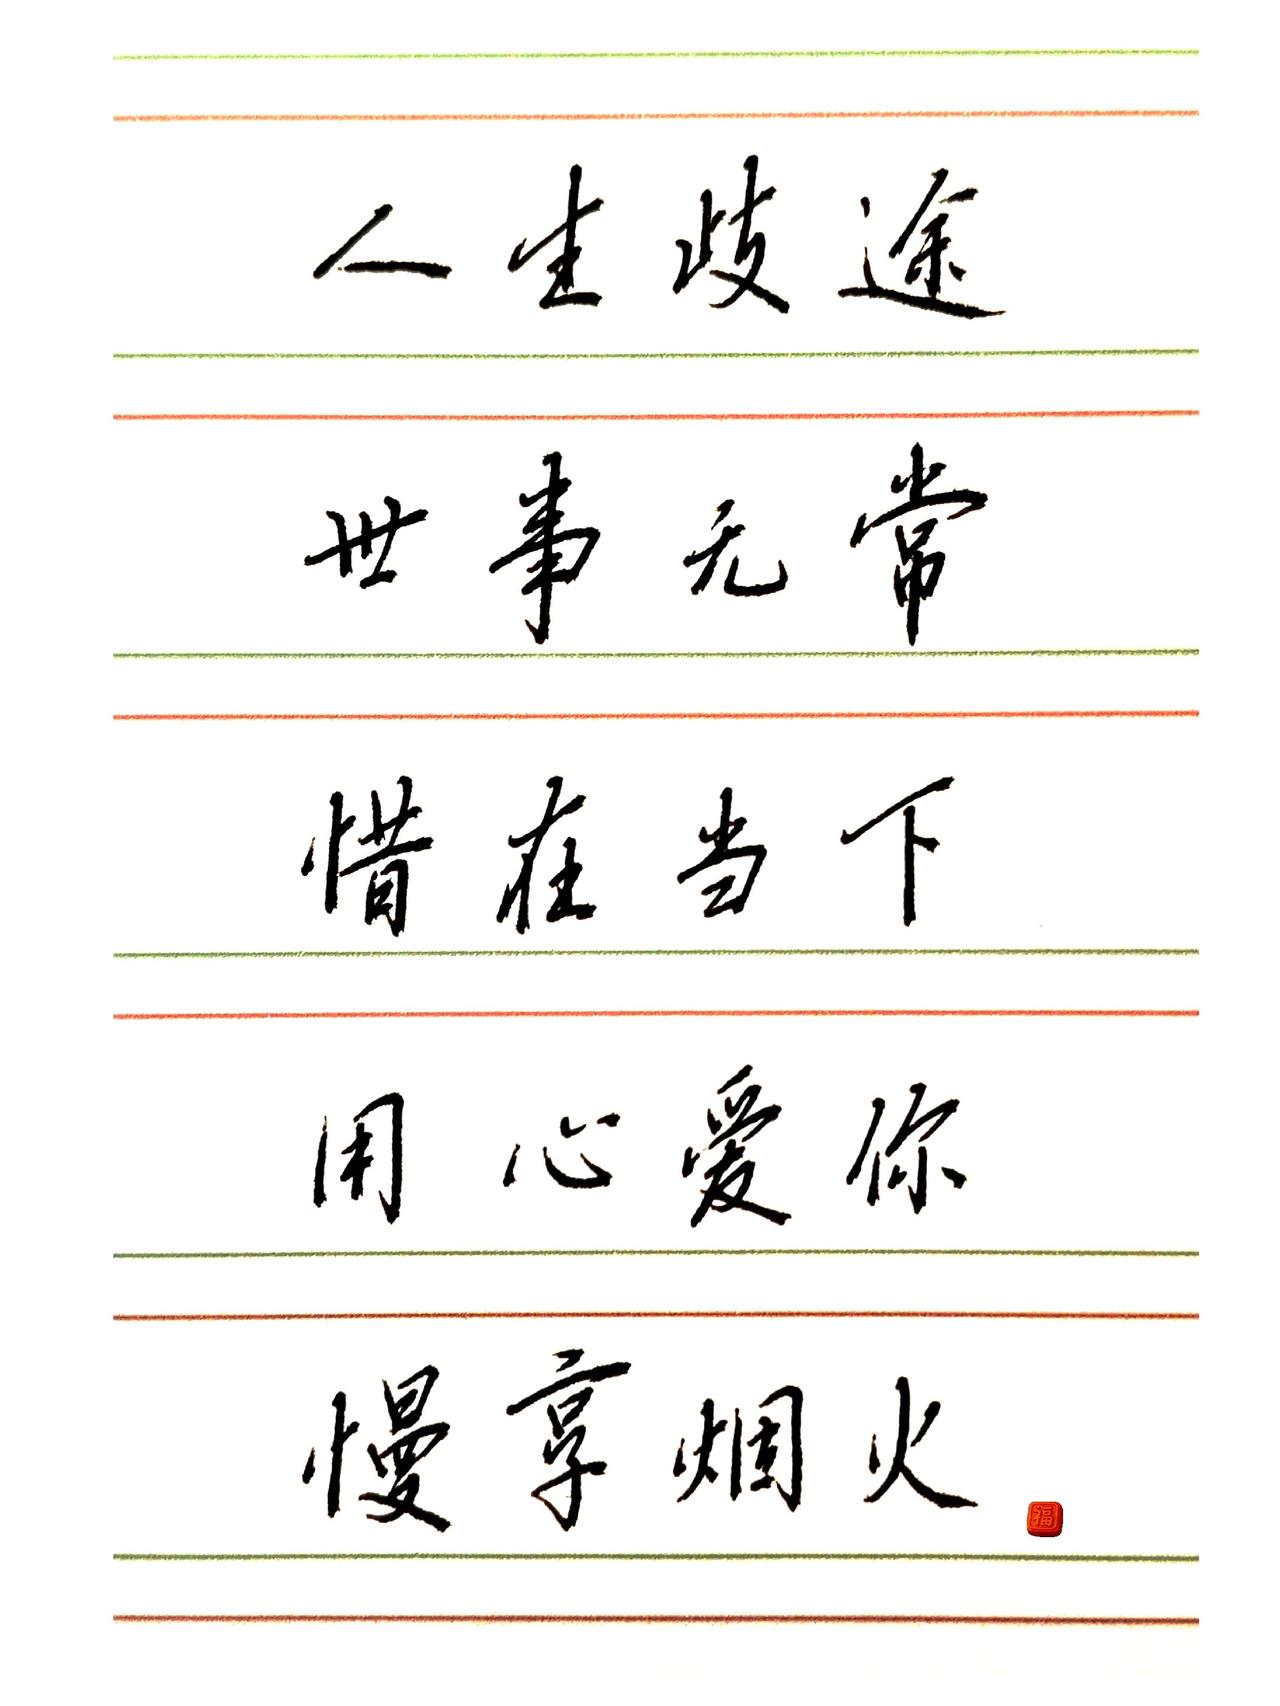 人生歧途
世事无常
惜在当下
用心爱你
慢享烟火
福